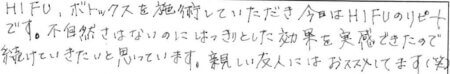 HIFU、ボトックスを施術していただき今日はHIFUのリピート
です。不自然さはないのにはっきりとした効果を実感できたので
続けていきたいと思っています。親しい友人にはおススメしてます(笑)